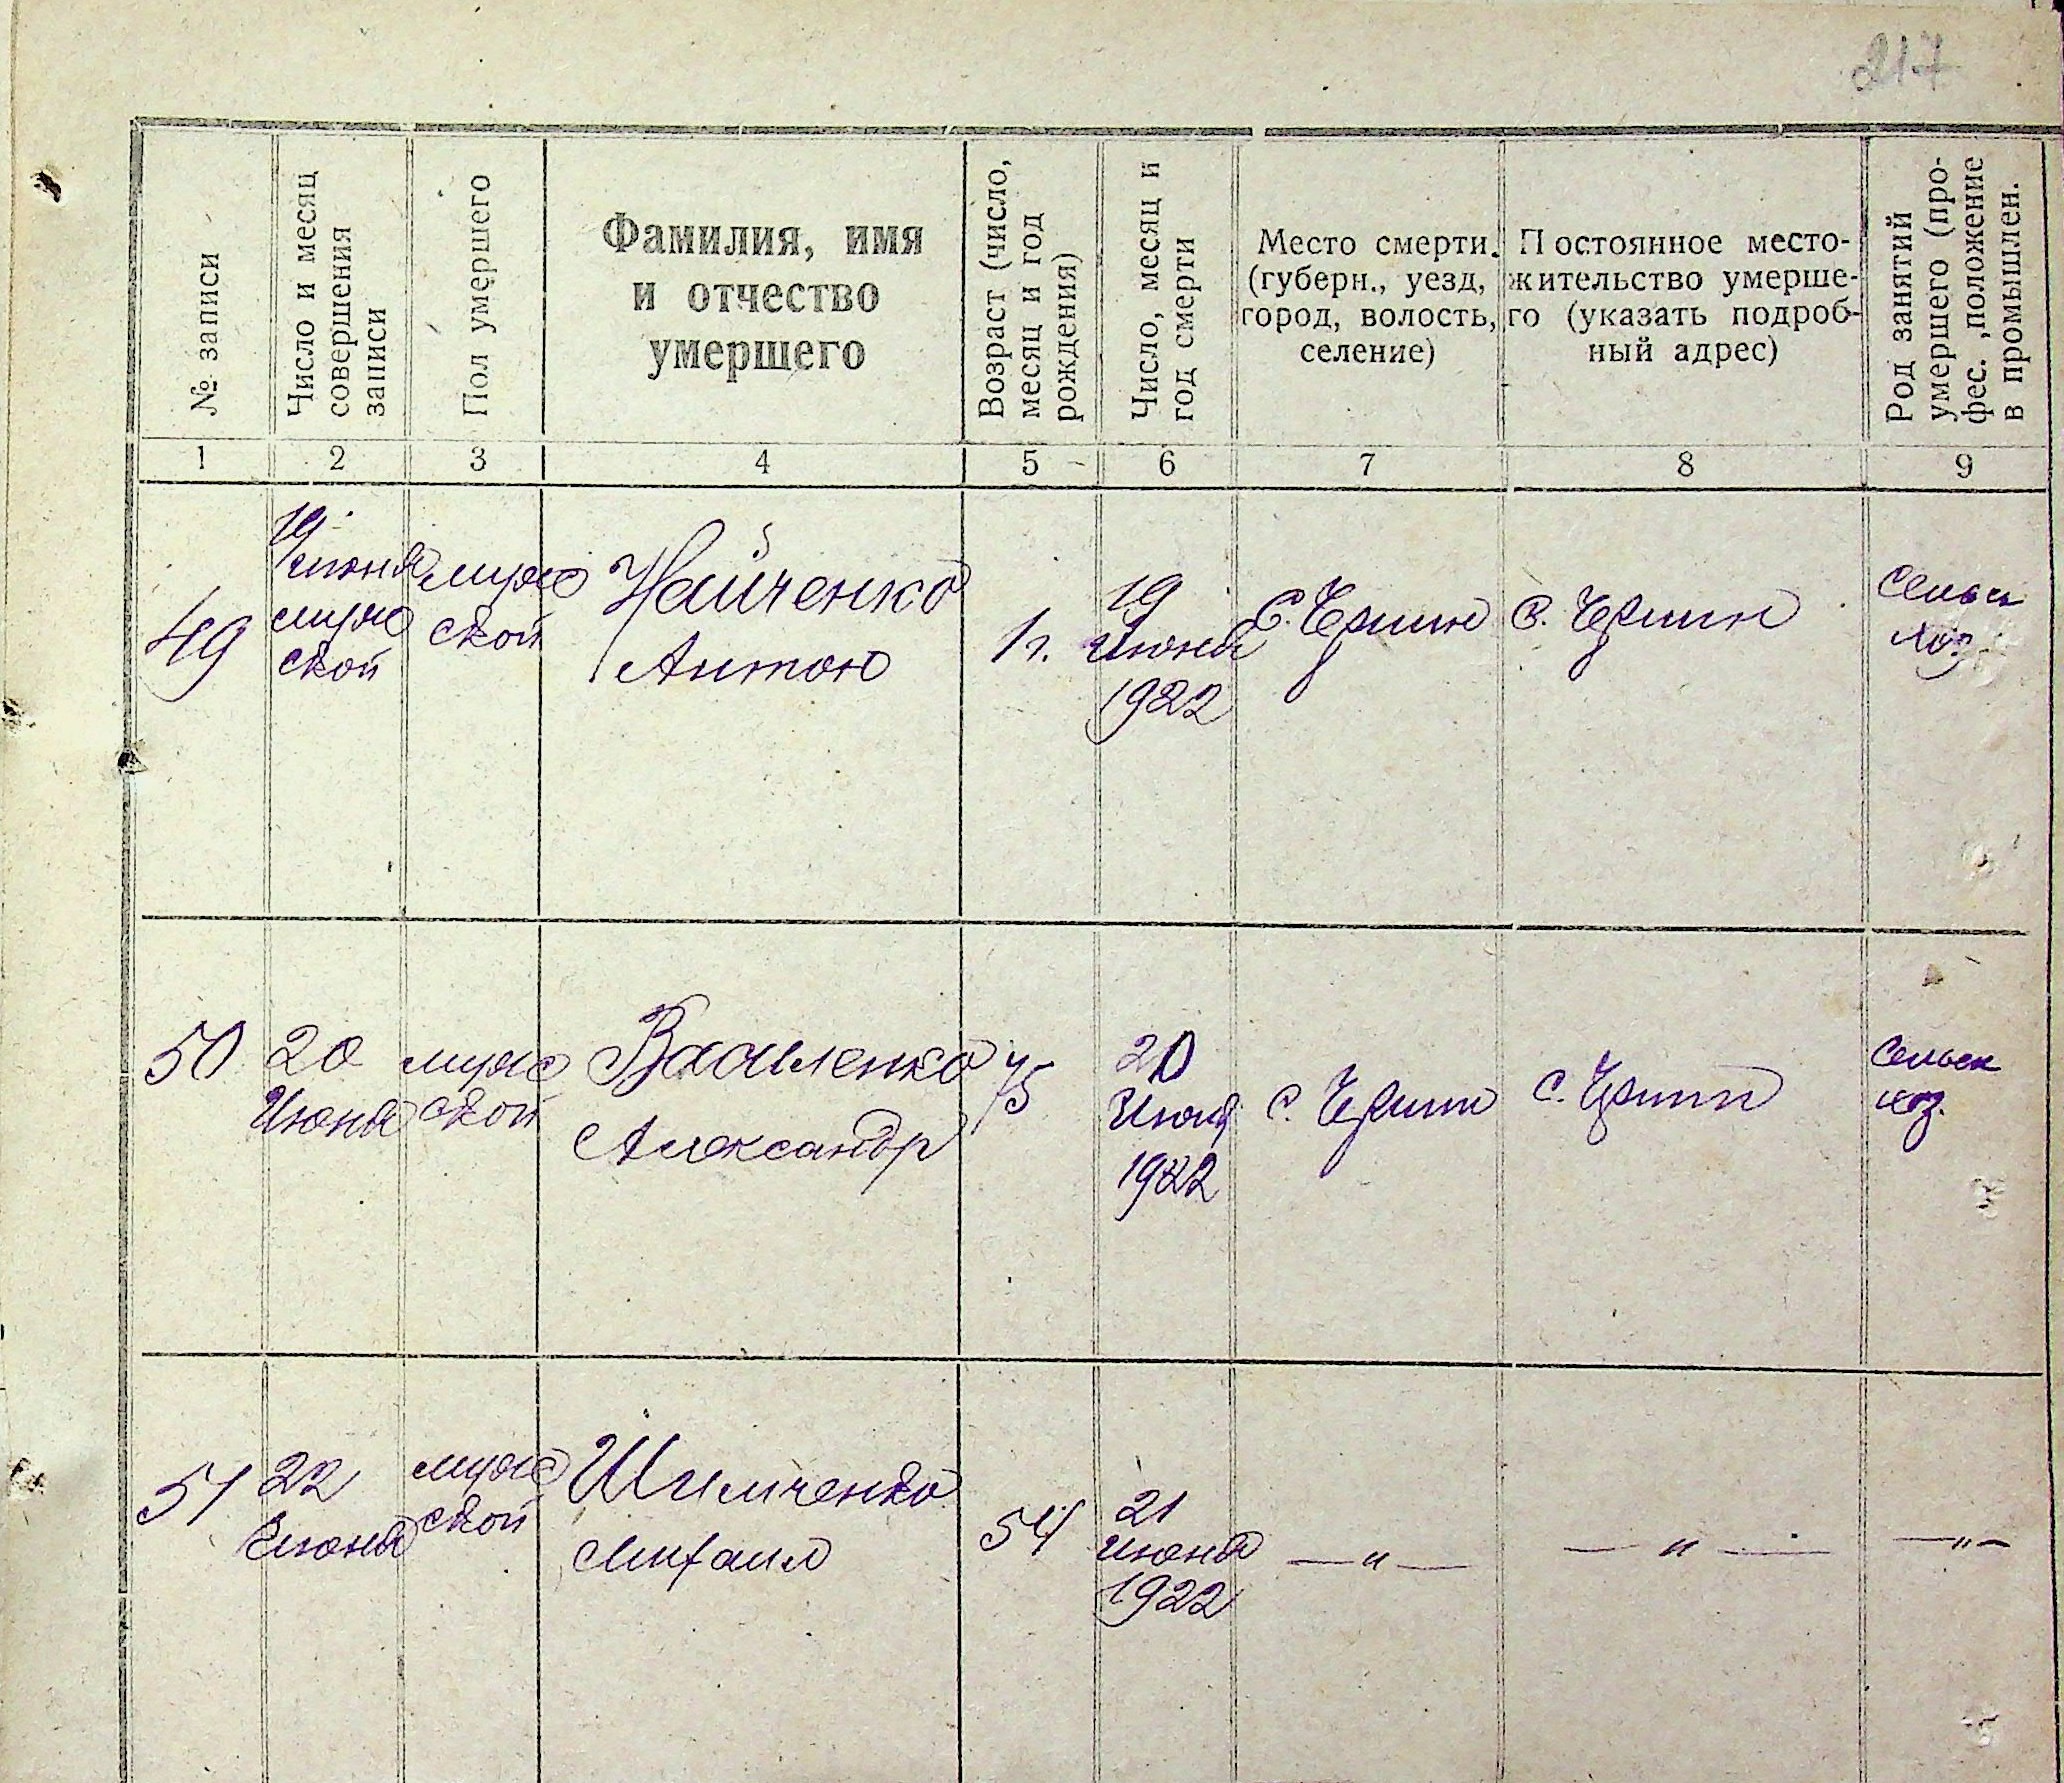 217
№ записи
Число и месяц
совершения
записи
Пол умершего
Фамилия, имя
и отчество
умершего
Возраст (число,
месяц и год
рождения)
Число, месяц и
год смерти
Место смерти.
(губерн., уезд,
город, волость,
селение)
Постоянное место-
жительство умерше-
го (указать подроб-
ный адрес)
Род занятий
умершего (про-
фес. ,положение
в промышлен.
1 2 3 4 5 6 7 8 9
49
19
июня
муж
ской
муж
ской
Найченко
Антон
1 г.
19
Июня
1922
С.
с.
Сельск
хоз.
50
20
Июня
муж
ской
Василенко
Александр
75
20
Июня
1922
с.
с.
Сельск
хоз.
51
22
Июня
муж
ской
Шимченко
Михаил
54
21
Июня
1922
—„—
—„—
—„—